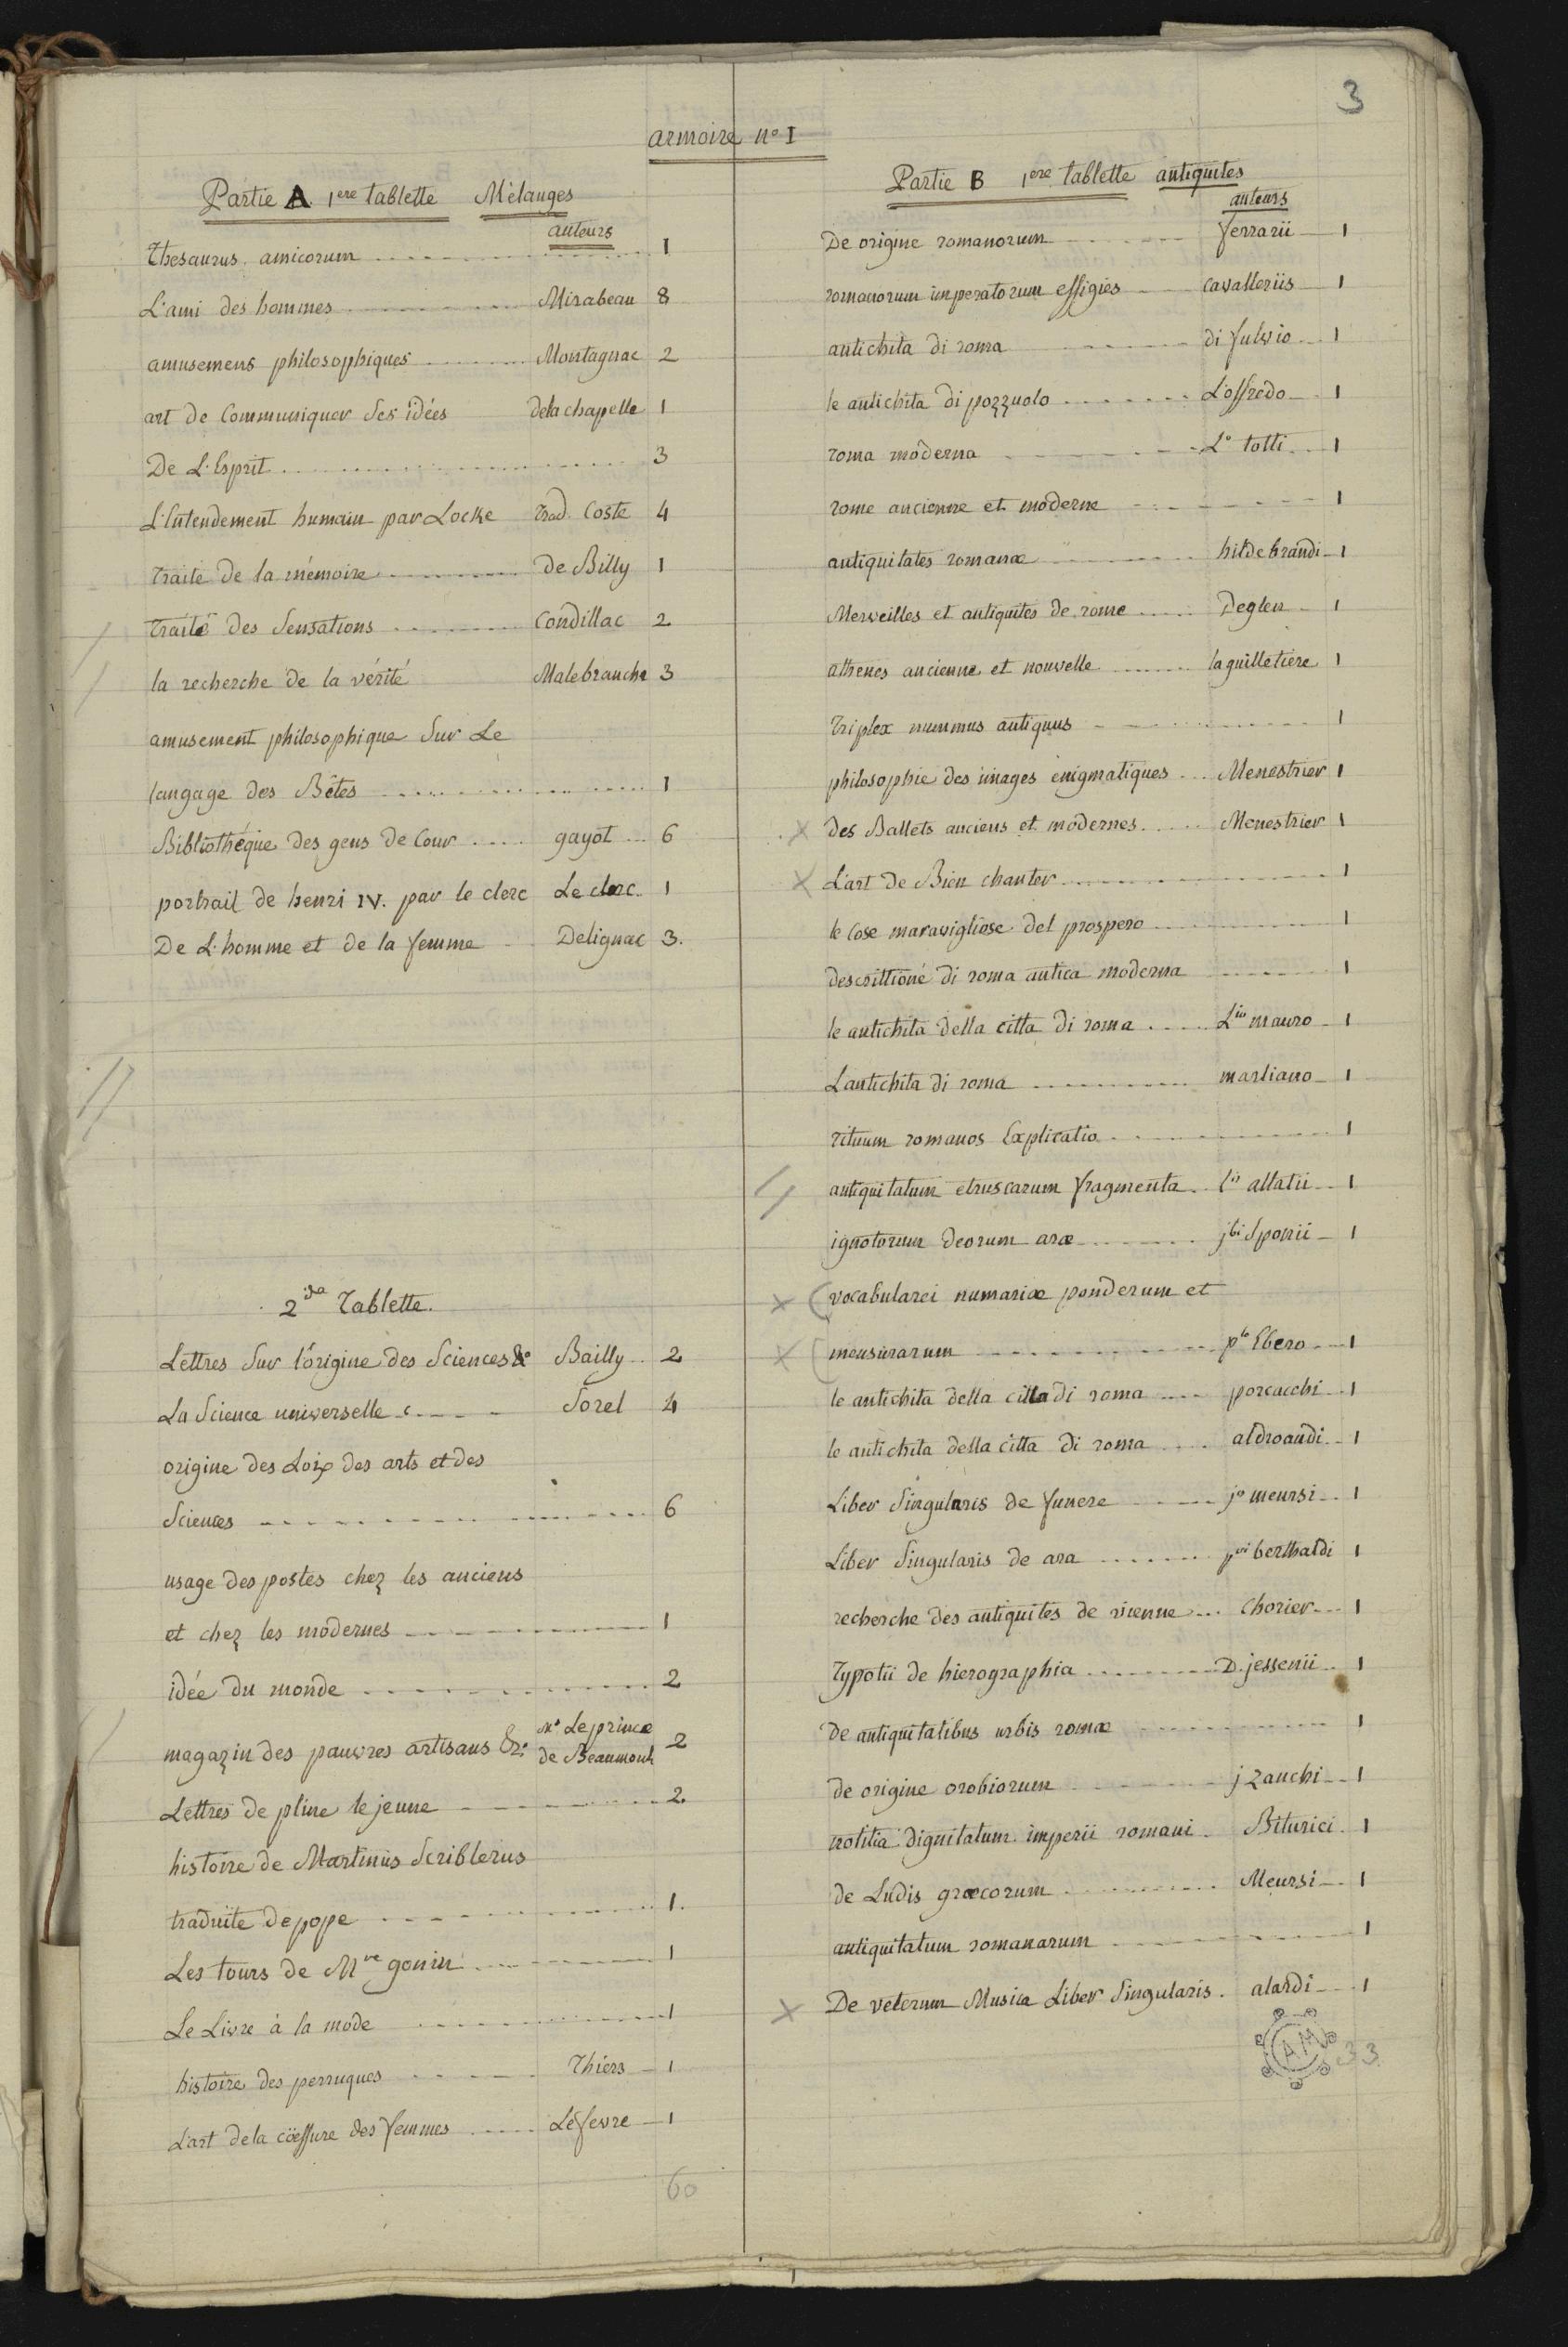 3
armoire n° I
Partie A 1ere tablette Mélanges
auteurs
Thesaurus amicorum 1
L'ami des hommes Mirabeau 8
amusemens philosophiques Montagnac 2
art de Communiquer ses idées de la chapelle 1
De L'Esprit 3
L'Entendement humain par Locke trad. Coste 4
Traité de la mémoire de Billy 1
Traité des Sensations Condillac 2
la recherche de la vérité Malebranche 3
amusement philosophique Sur Le
langage des Bêtes 1
Bibliothéque des gens de Cour gayot 6
portrait de henri IV. par le clerc Le clerc 1
De L'homme et de la femme Delignac 3.
2da Tablette.
Lettres Sur l'origine des Sciences &c Bailly 2
La Science universelle Sorel 4
origine des Loix des arts et des
Sciences 6
usage des postes chez les anciens
et chez les modernes 1
idée du monde 2
magazin des pauvres artisans &c. Me Le prince de Beaumont 2
Lettres de pline le jeune 2.
histoire de Martinus Scriblerus
traduite de pope 1.
Les tours de Mre gonin 1
Le Livre à la mode 1
histoire des perruques Thiers 1
L'art de la cöeffure des femmes Lefevre 1
60
Partie B 1ere tablette antiquites
auteurs
De origine romanorum ferrarii 1
romanorum imperatorum effigies cavalleriis 1
antichita di roma di fulvio 1
le antichita di pozzuolo Loffredo 1
roma moderna Lo totti 1
rome ancienne et moderne 1
antiquitates romanæ hildebrandi 1
Merveilles et antiquites de rome Deglen 1
athenes ancienne et nouvelle la guilletiere 1
Triplex nummus antiquus 1
philosophie des images enigmatiques Menestrier 1
x des Ballets anciens et modernes Menestrier 1
x L'art de Bien chanter 1
le Cose maravigliose del prospero 1
descrittioné di roma antica moderna 1
le antichita della citta di roma Lio mauro 1
Lantichita di roma marliano 1
rituum romanos Explicatio 1
antiquitatum etruscarum fragmenta Lii allatii 1
ignotorum deorum aræ jbi Sponii 1
x vocabularei numariæ ponderum et
x mensurarum plo Ebero 1
le antichita della citta di roma porcacchi 1
le antichita della citta di roma aldroandi 1
Liber Singularis de funere jo meursi 1
Liber Singularis de ara pri berthaldi 1
recherche des antiquites de vienne Chorier 1
Typotii de hierographia D. jessenii 1
De antiquitatibus urbis romæ 1
de origine orobiorum j zanchi 1
notitia dignitatum imperii romani Biturici 1
de Ludis græcorum Meursi 1
antiquitatum romanarum 1
x De veterum Musica Liber Singularis alardi 1
AM
33